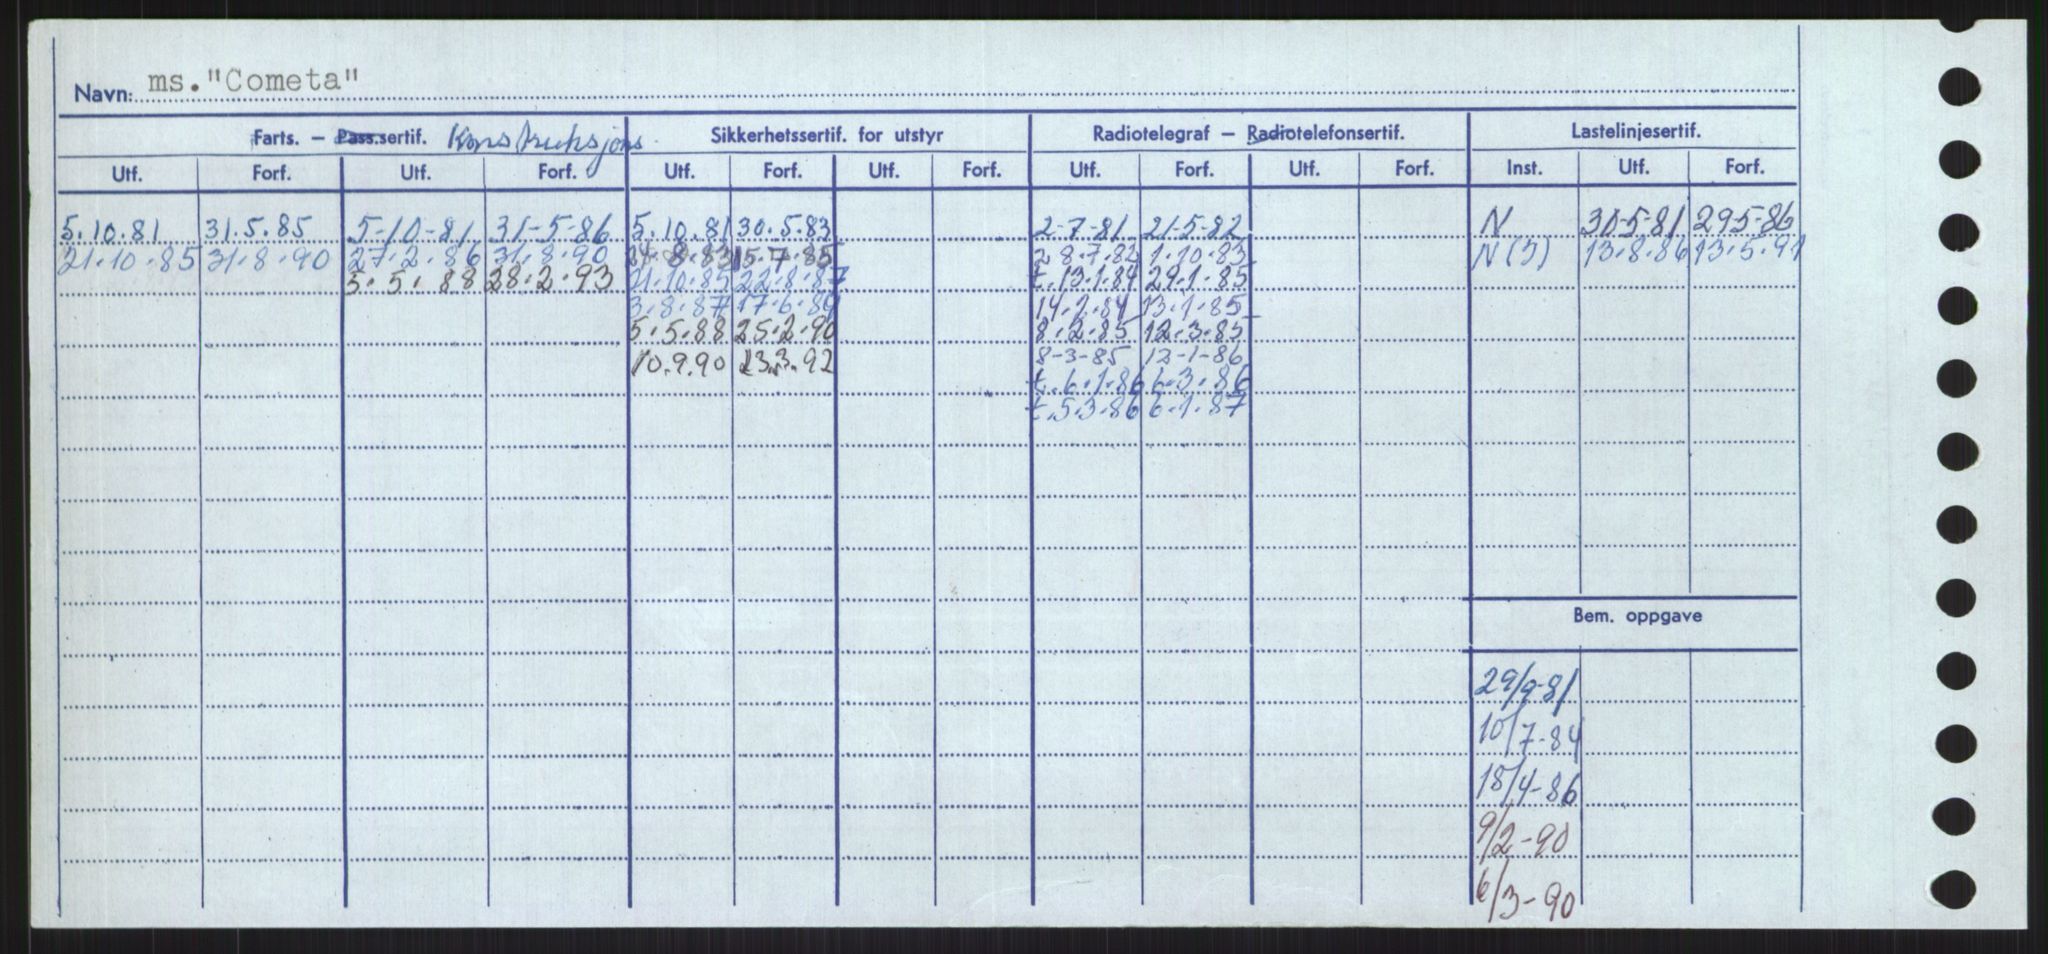 Navn: ms."Cometa"
Farts. – Pass.sertif. Konstruksjons Sikkerhetssertif. for utstyr Radiotelegraf – Radiotelefonsertif. Lastelinjesertif.
Utf. Forf. Utf. Forf. Utf. Forf. Utf. Forf. Utf. Forf. Utf. Forf. Inst. Utf. Forf.
5.10.81 31.5.85 5-10-81 31-5-86 5.10.81 30.5.83 2-7-81 21-5-82 N 30-5-81 29-5-86
21.10.85 31.8.90 27.2.86 31.8.90 24.8.83 15.7.85 28.7.82 1.10.83 N(3) 13.8.86 13.5.91
5.5.88 28.2.93 21.10.85 22.8.87 t.13.1.84 29.1.85
3.8.87 17.6.89 14.2.84 13.1.85
5.5.88 25.2.90 8.2.85 12.3.85
10.9.90 23.3.92 8-3-85 12-1-86
t.6.1.86 6.3.86
t.5.3.86 6.1.87
Bem. oppgave
29/9-81
10/7-84
18/4-86
9/2-90
6/3-90